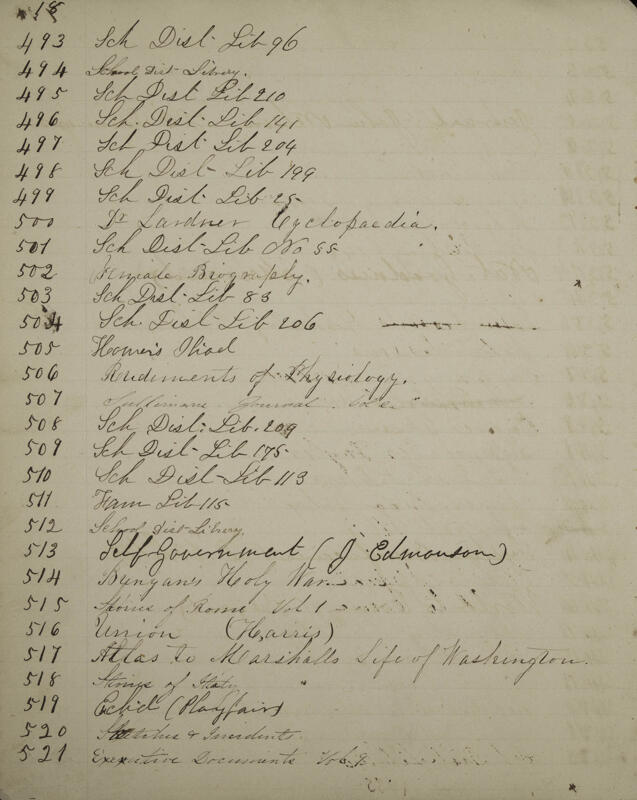 18
493 Sch Dist Lib 96
494 School Dist Library.
495 Sch Dist Lib 210
496 Sch. Dist. Lib 141
497 Sch Dist Lib 204
498 Sch Dist Lib 199
499 Sch Dist Lib 25
500 Dr Lardner Cyclopaedia.
501 Sch Dist Lib No 55
502 Female Biography.
503 Sch Dist. Lib 83
504 Sch. Dist Lib 206
505 Homer's Iliad
506 Rudiments of Physiology.
507 Journal
508 Sch Dist. Lib. 209
509 Sch Dist Lib 175
510 Sch Dist Lib 113
511 Fam Lib 115
512 School Dist Library.
513 Self Government (J Edmonson)
514 Bunyan's Holy War
515 Stories of Rome Vol 1
516 Union (Harris)
517 Atlas to Marshalls Life of Washington.
518 of Italy "
519 Eclid (Playfair)
520 Sketches & Incidents.
521 Executive Documents Vol 8